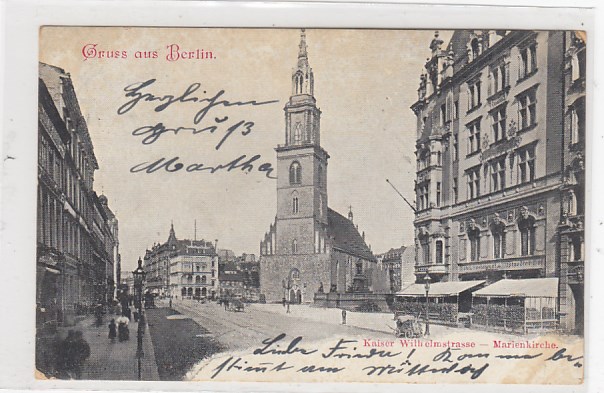 Gruss aus Berlin.
Herzlichen
Gruß
Martha
Kaiser Wilhelmstrasse — Marienkirche.
Liebe Friede! Komme be-
stimmt am Mittwoch